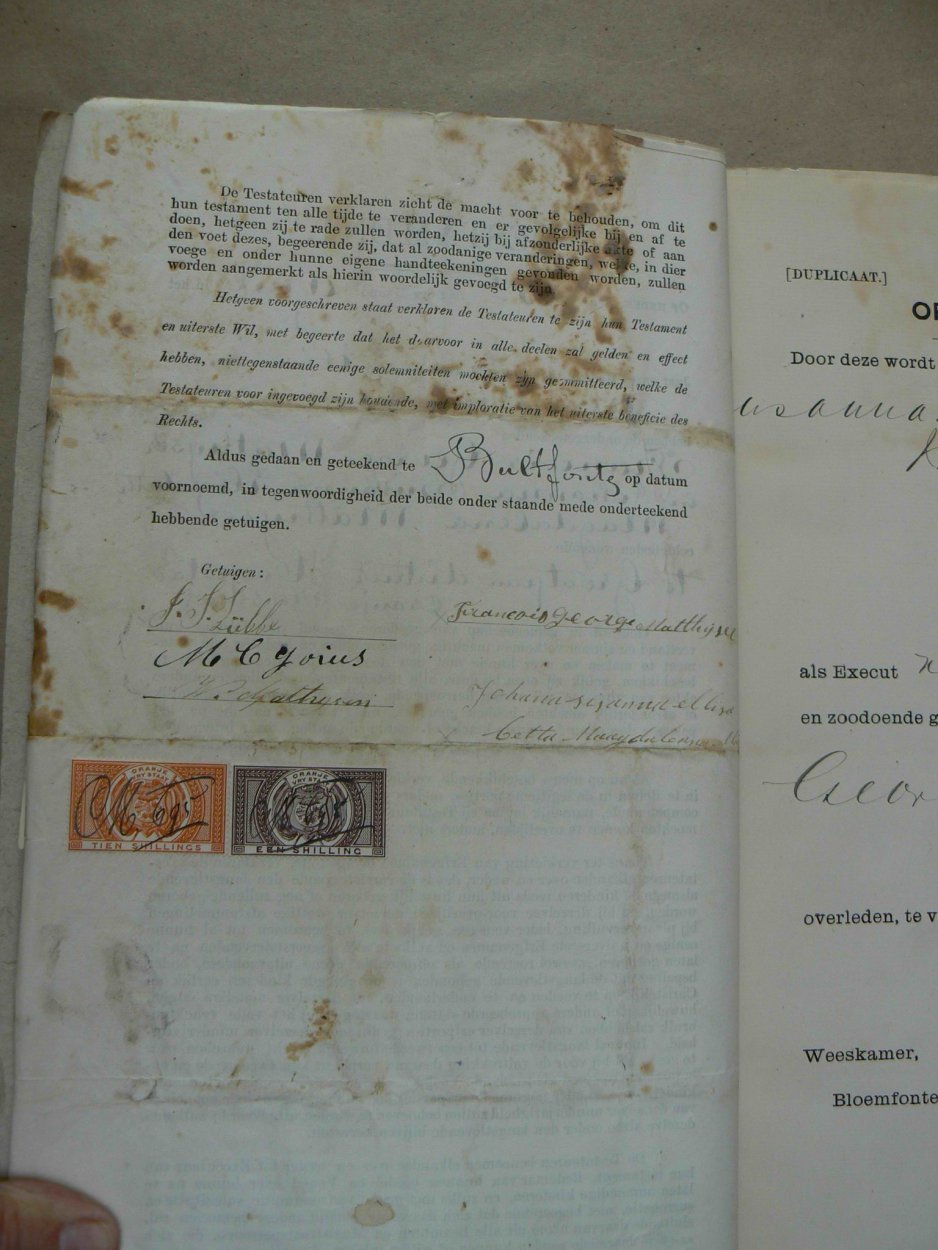 De Testateuren verklaren zicht de macht voor te behouden, om dit
hun testament ten alle tijde te veranderen en er gevolgelijke bij en af te
doen, hetgeen zij te rade zullen worden, hetzij bij afzonderlijke akte of aan
den voet dezes, begeerende zij, dat al zoodanige veranderingen, welke, in dier
voege en onder hunne eigene handteekeningen gevonden worden, zullen
worden aangemerkt als hierin woordelijk gevoegd te zijn.
Hetgeen voorgeschreven staat verkloren de Testateuren te zijn hun Testament
en uiterste Wil, met begeerte dat het daarvoor in alle deelen zal gelden en effect
hebben, niettegenstaande eenige solemniteiten mochten zijn geommitteerd, welke de
Testateuren voor ingevoegd zijn houdende, met imploratie van het uiterste beneficie des
Rechts.
Aldus gedaan en geteekend te Bultfontein op datum
voornoemd, in tegenwoordigheid der beide onder staande mede onderteekend
hebbende getuigen.
Getuigen:
J. J. Lübbe
Francois George Matthysen
M C Goius
Johanna
Magdalena
ORANJE
VRY STAAT
TIEN SHILLINGS
ORANJE
VRY STAAT
EEN SHILLING
[DUPLICAAT.]
OR
Door deze wordt
usanna
als Execut
en zoodoende g
Geor
overleden, te v
Weeskamer,
Bloemfonte